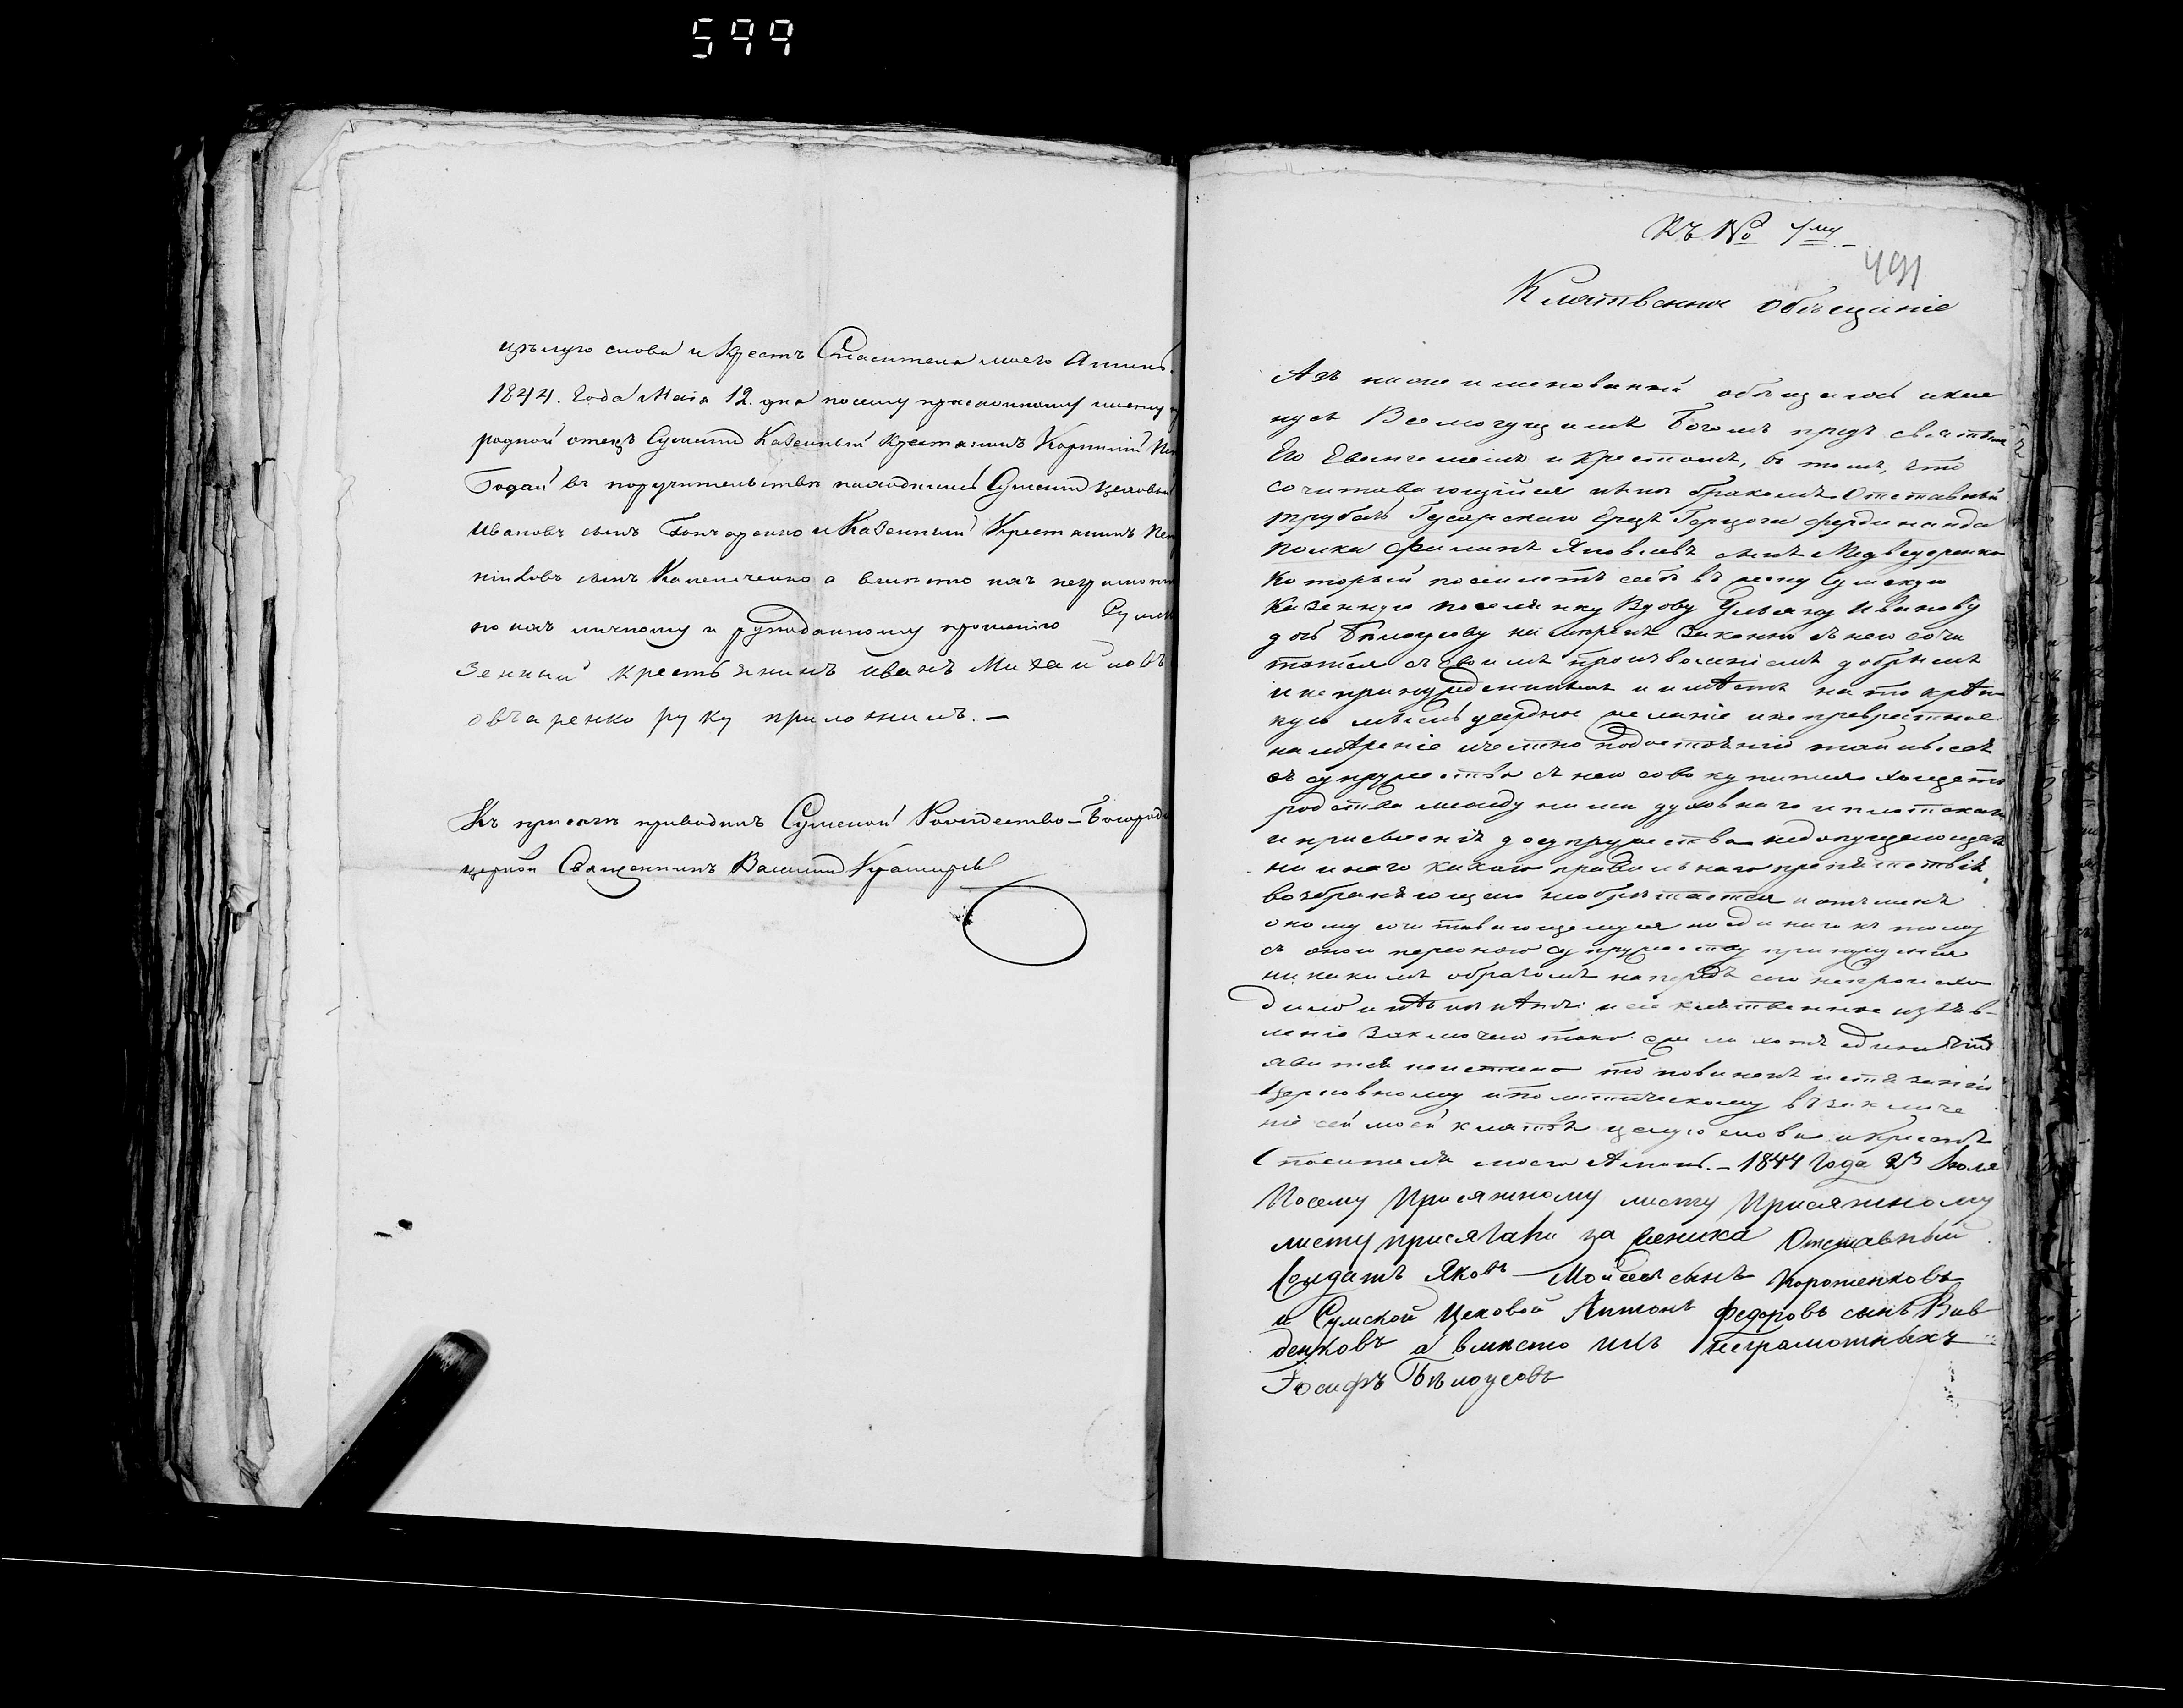 599
цѣлую слова и Крестъ Спасителя моего Аминь.
1844. Года Маія 12. дня посему присяжному листу
родной отецъ Сумской Казенный Крестьянинъ Корнилій
Годай въ поручительствѣ находились Сумской цеховый
Ивановъ сынъ Гончаренко и Казенный Крестьянинъ
сынъ а вмѣсто ихъ неграмотн
по ихъ личному и рукоданному прошенію Сумск
зенный крестьянинъ иванъ Михайловъ
овчаренко руку приложилъ. —
Къ присягѣ приводилъ Сумской Рождество-Богороди
церкви Священникъ Василій
КЪ № 7му
491
Клятвенное обѣщаніе
Азъ ниже именованный обѣщаюсь и кле
нусь Всемогущимъ Богомъ предъ святымъ
Его Евангеліемъ и Крестомъ, въ томъ, что
сочитавающійся нынѣ бракомъ Отставный
трубачъ Гусарскаго Ерцъ Герцога Фердинанда
полка Филипъ Яковлевъ сынъ Медведеренко
который поемлетъ себѣ въ жену Сумскую
Казенную поселянку Вдову Ульяну Иванову
дочь Бѣлоусову намѣренъ Законно съ нею соче
татся съ своимъ произволеніемъ добрымъ
и непринужденнымъ и имѣетъ на то крѣп
кую мысль усердное желаніе и непревратное
намѣреніе и честно
въ супружество съ нею совокупится хощетъ
родства между ними духовнаго и плотскаго
и присвоенія до супружества недопущающаго
ни инаго какаго правильнаго препятствія
возбраняющаго необрѣтается и отъ мене
оному сочитавающемуся ко
съ оною персоною супружеству принужденія
никакимъ образомъ напредъ сего непроисхо
дило и нѣтъ нынѣ: и сіе клятвенное изъяв-
леніе Заключаю тако: ежели хотя едина
явится неистинно то повиненъ истязанію
Церковному и политическому въ заключе
ніе сей моей клятвы цѣлую слова и Крестъ
Спасителя моего Аминь. — 1844 Года 23 Іюля
Посему Присяжному листу Присяжному
листу присягали за жениха Отставный
Солдатъ Яковъ Моисея сынъ Короженковъ
и Сумской Цеховой Антонъ Федоровъ сынъ Вив
денковъ а вмѣсто ихъ неграмотныхъ
Іосифъ Бѣлоусовъ